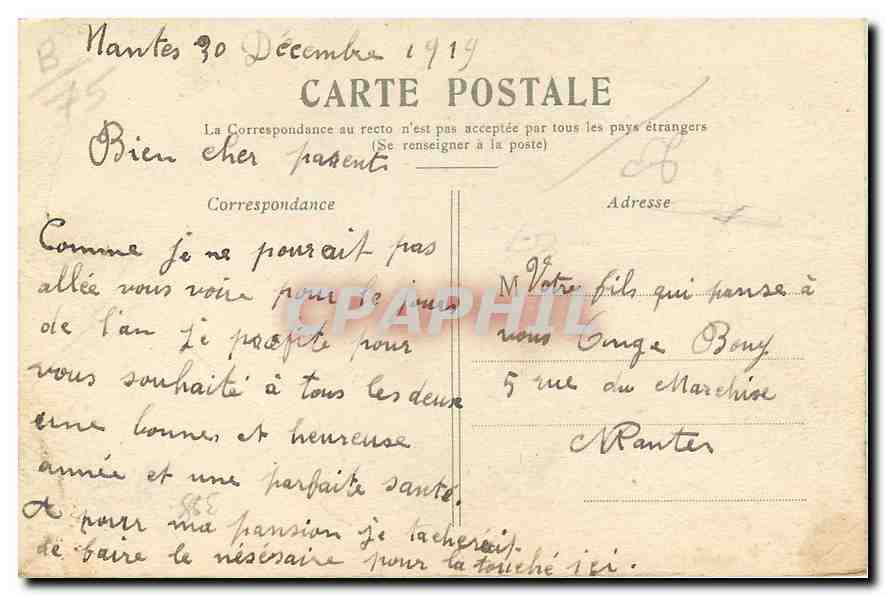 Nantes 30 Décembre 1919
B/45
CARTE POSTALE
La Correspondance au recto n'est pas acceptée par tous les pays étrangers
(Se renseigner à la poste)
Bien cher parent
Correspondance
Comme je ne pourait pas
allée vous voire pour le jours
de l'an je profite pour
vous souhaité à tous les deux
une bonnes et heureuse
année et une parfaite santé.
pour ma pansion je tacherait
de faire le nésésaire pour la touché ici.
Adresse
M Votre fils qui panse à
vous Bouy
5 rue du Marchise
Nantes
CPAPHIL